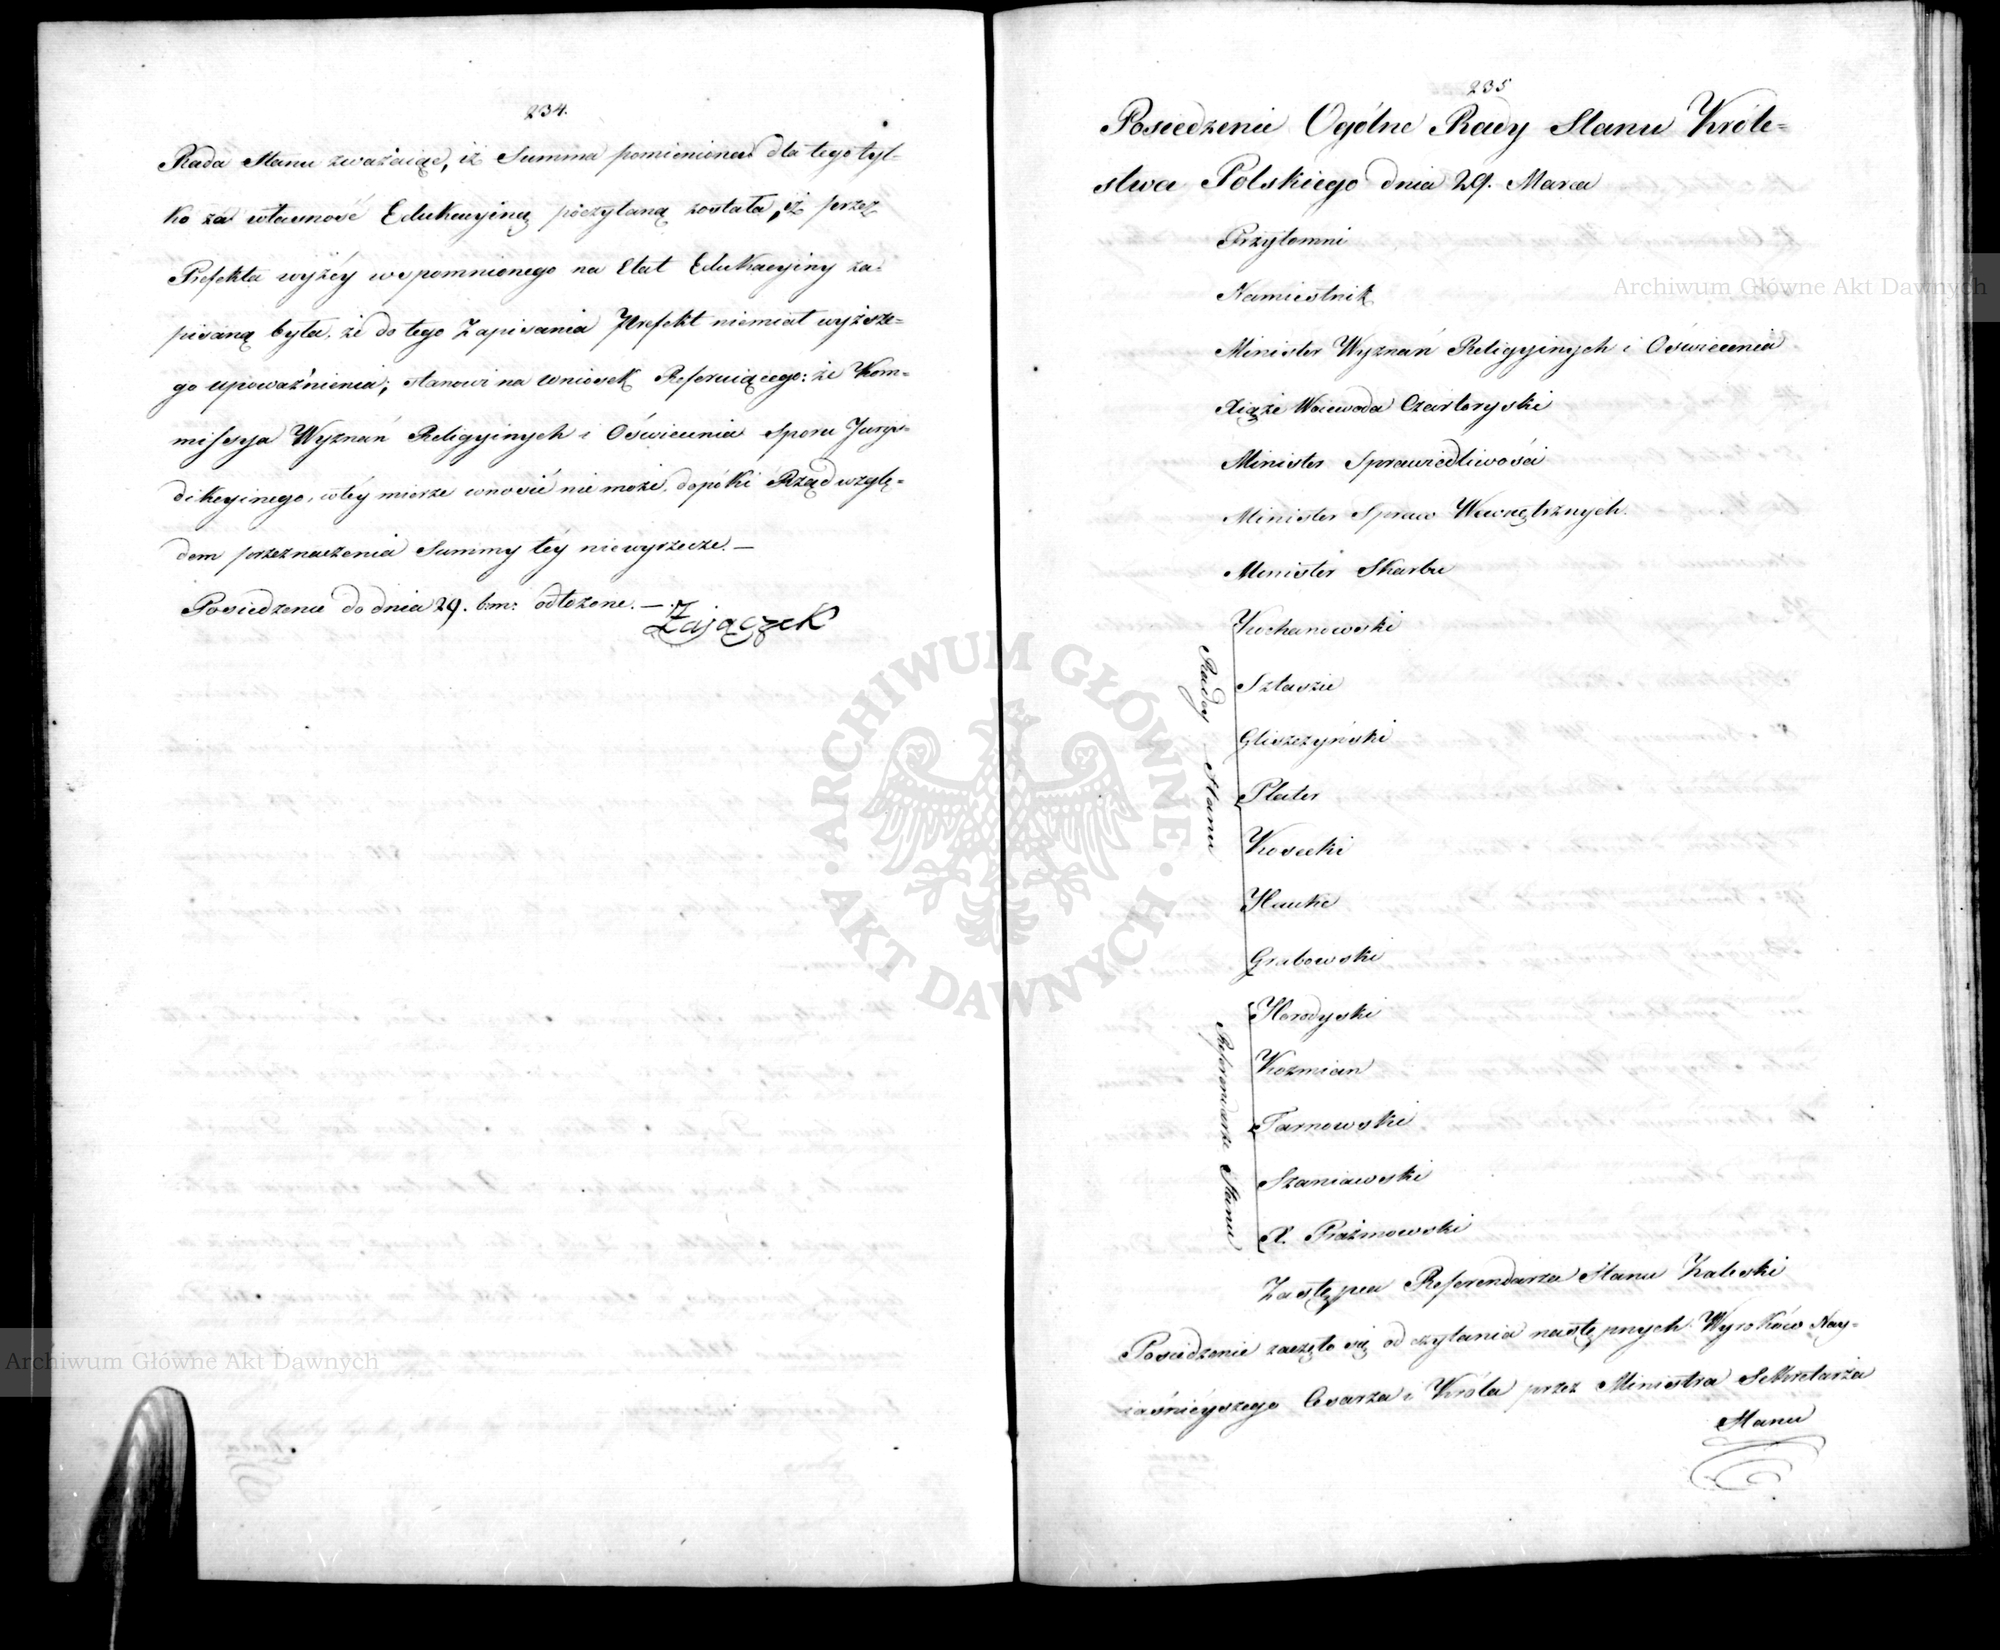 234.
Rada Stanu zważaiąc, iż Summa pomieniona dla tego tyl-
ko za własność Edukacyiną poczytaną została, iż przez
Prefekta wyżéy wspomnionego na Etat Edukacyiny za-
pisaną była, że do tego Zapisania Prefekt niemiał wyższe-
go upoważnienia; stanowi na wniosek Referuiącego: że Kom-
missya Wyznań Religyinych i Oświecenia Sporu Jurys-
dikcyinego, w téy mierze wnosić nie może, dopóki Rząd wzglę-
dem przeznaczenia Summy téy niewyrzecze. —
Posiedzenie do dnia 29. b.m: odłożone. —
Zajączek
235
Posiedzenie Ogólne Rady Stanu Króle-
stwa Polskiego dnia 29. Marca
Przytomni
Namiestnik
Minister Wyznań Religyinych i Oświecenia
Xiąże Woiewoda Czartoryski
Minister Sprawiedliwości
Minister Spraw Wewnętrznych.
Minister Skarbu
Radcy Stanu
Kochanowski
Sztaszic
Gliszczyński
Plater
Kosecki
Hauke
Grabowski
Referendarze Stanu
Horodyski
Kozmian
Tarnowski
Szaniawski
X. Prażmowski
Zastępca Referendarza Stanu Zaleski
Posiedzenie zaczęło się od czytania następnych Wyroków Nay-
iaśnieyszego Cesarza i Króla przez Ministra Sekretarza
Stanu
Archiwum Główne Akt Dawnych
Archiwum Główne Akt Dawnych
ARCHIWUM GŁÓWNE · AKT DAWNYCH ·